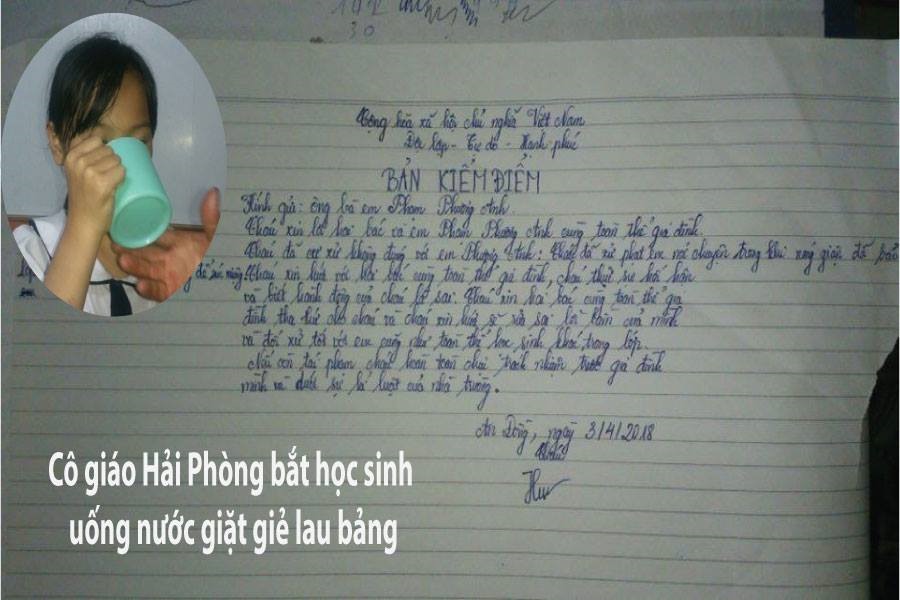 Cộng hòa xã hội chủ nghĩa Việt Nam
Độc lập - Tự do - Hạnh phúc
BẢN KIỂM ĐIỂM
Kính gửi: ông bà em Phạm Phương Anh.
Cháu xin lỗi hai bác và em Phạm Phương Anh cùng toàn thể gia đình.
Cháu đã cư xử không đúng với em Phương Anh: Cháu đã xử phạt em nói chuyện trong khi nóng giận đã bắt
Cháu xin hứa với hai bác cùng toàn thể gia đình, cháu thực sự hối hận
và biết hành động của cháu là sai. Cháu xin hai bác cùng toàn thể gia
đình tha thứ cho cháu và cháu xin hứa sẽ sửa sai lỗi lầm của mình
và đối xử tốt với em cũng như toàn thể học sinh khác trong lớp.
Nếu còn tái phạm cháu hoàn toàn chịu trách nhiệm trước gia đình
mình và dưới sự kỉ luật của nhà trường.
An Đồng, ngày 3/4/2018
Cô giáo Hải Phòng bắt học sinh
uống nước giặt giẻ lau bảng